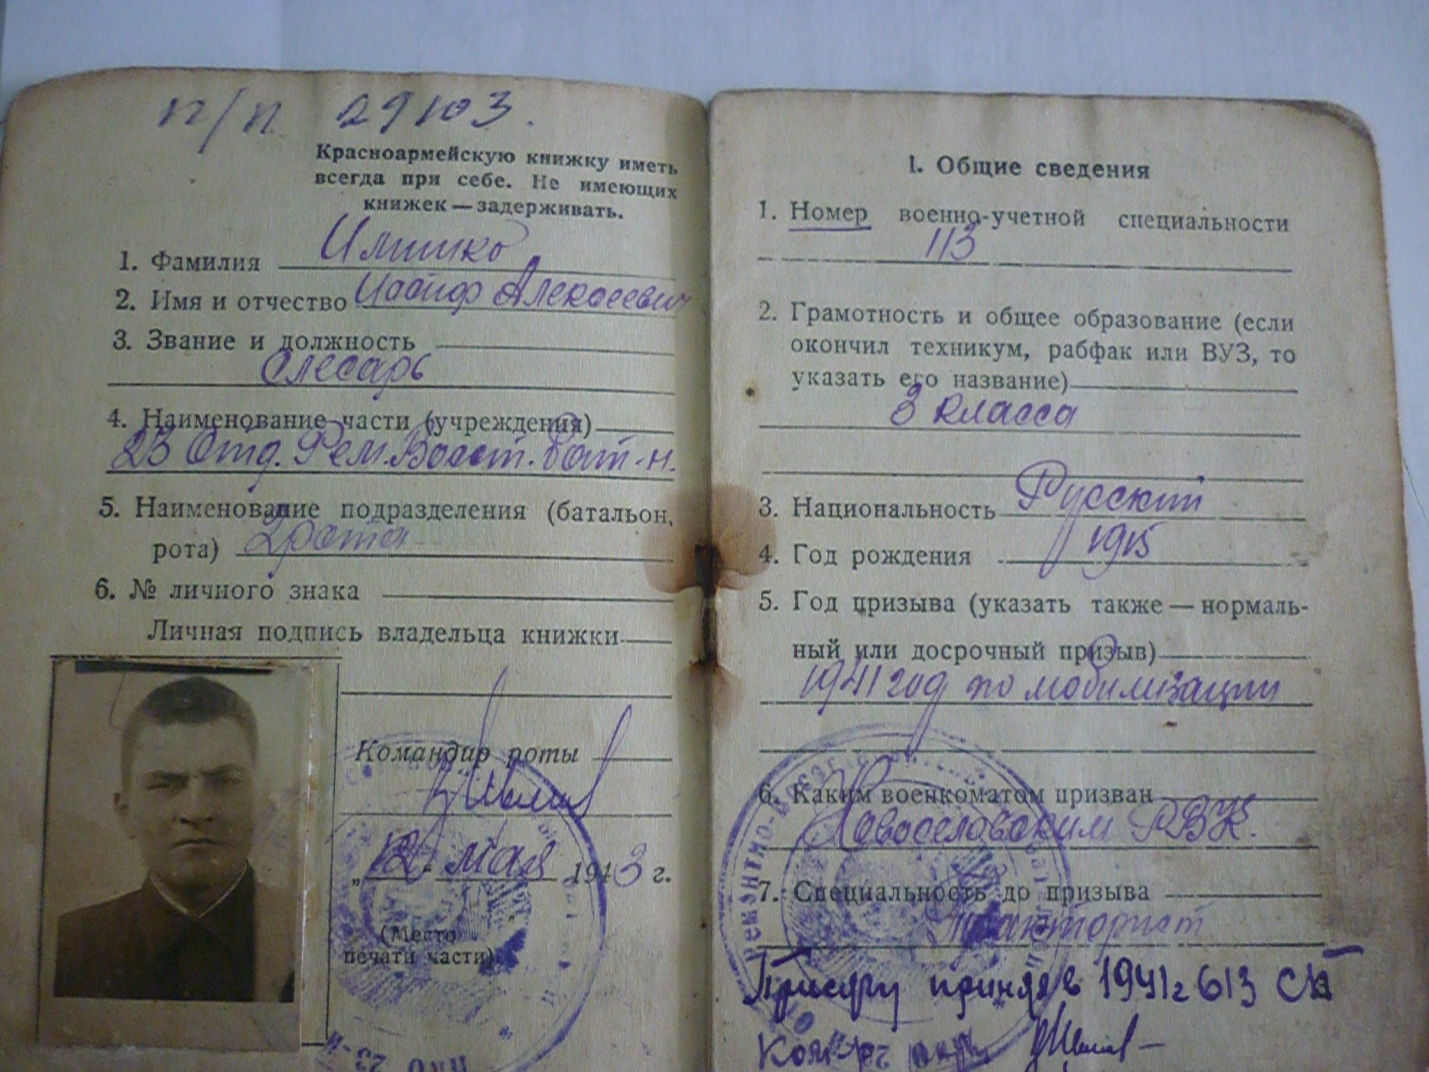 п/п. 29103.
Красноармейскую книжку иметь
всегда при себе. Не имеющих
книжек — задерживать.
1. Фамилия Илишко
2. Имя и отчество Иосиф Алексеевич
3. Звание и должность
Слесарь
4. Наименование части (учреждения)
23 Отд. Рем. Восст. бат-н.
5. Наименование подразделения (батальон,
рота) 2 рота
6. № личного знака
Личная подпись владельца книжки
Командир роты
„12" мая 1943 г.
(Место
печати части)
I. Общие сведения
1. Номер военно-учетной специальности
113
2. Грамотность и общее образование (если
окончил техникум, рабфак или ВУЗ, то
указать его название)
3 класса
3. Национальность Русский
4. Год рождения 1915
5. Год призыва (указать также — нормаль-
ный или досрочный призыв)
1941 год по мобилизации
6. Каким военкоматом призван
Новоселовским РВК.
7. Специальность до призыва
Тракторист
Присягу принял в 1941г 613 СП